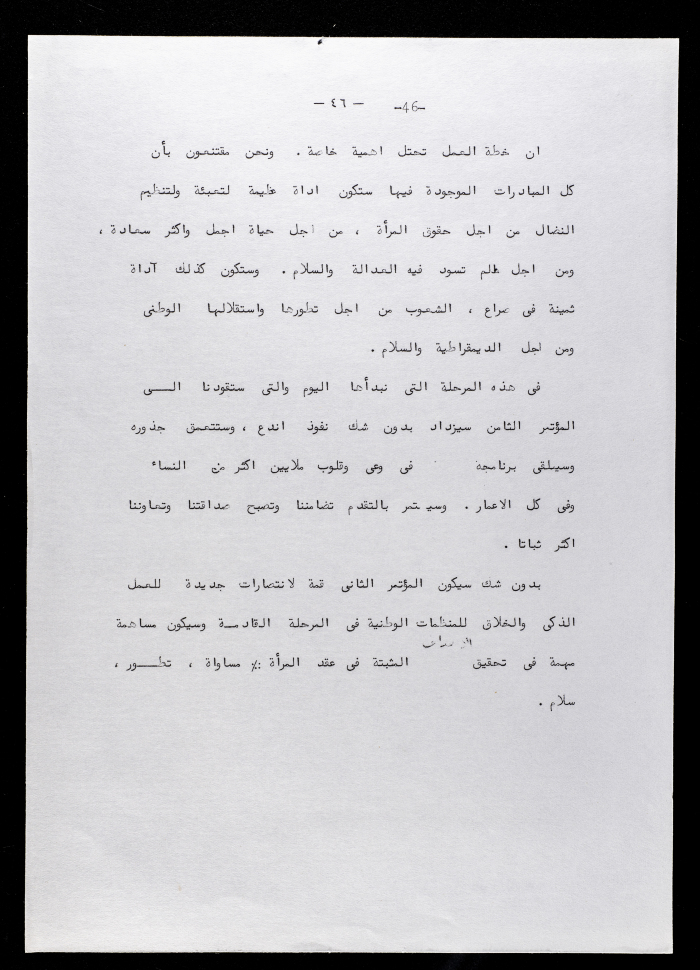 -46- — ٤٦ —
ان خطة العمل تحتل اهمية خاصة . ونحن مقتنعون بأن
كل المبادرات الموجودة فيها ستكون اداة عظيمة لتعبئة ولتنظيم
النضال من اجل حقوق المرأة ، من اجل حياة اجمل واكثر سعادة ،
ومن اجل عالم تسود فيه العدالة والسلام . وستكون كذلك آداة
ثمينة فى صراع ، الشعوب من اجل تطورها واستقلالها الوطنى
ومن اجل الديمقراطية والسلام .
فى هذه المرحلة التى نبدأها اليوم والتى ستقودنا الـــى
المؤتمر الثامن سيزداد بدون شك نفوذ اندع ، وستتعمق جذوره
وسيلقى برنامجة فى وعى وقلوب ملايين اكثر من النساء
وفى كل الاعمار . وسيستمر بالتقدم تضامننا وتصبح صداقتنا وتعاوننا
اكثر ثباتا .
بدون شك سيكون المؤتمر الثانى قمة لانتصارات جديدة للعمل
الذكى والخلاق للمنظمات الوطنية فى المرحلة القادمـــة وسيكون مساهمة
الاهداف
مهمة فى تحقيق المثبتة فى عقد المرأة ٪ مساواة ، تطـــور ،
سلام .